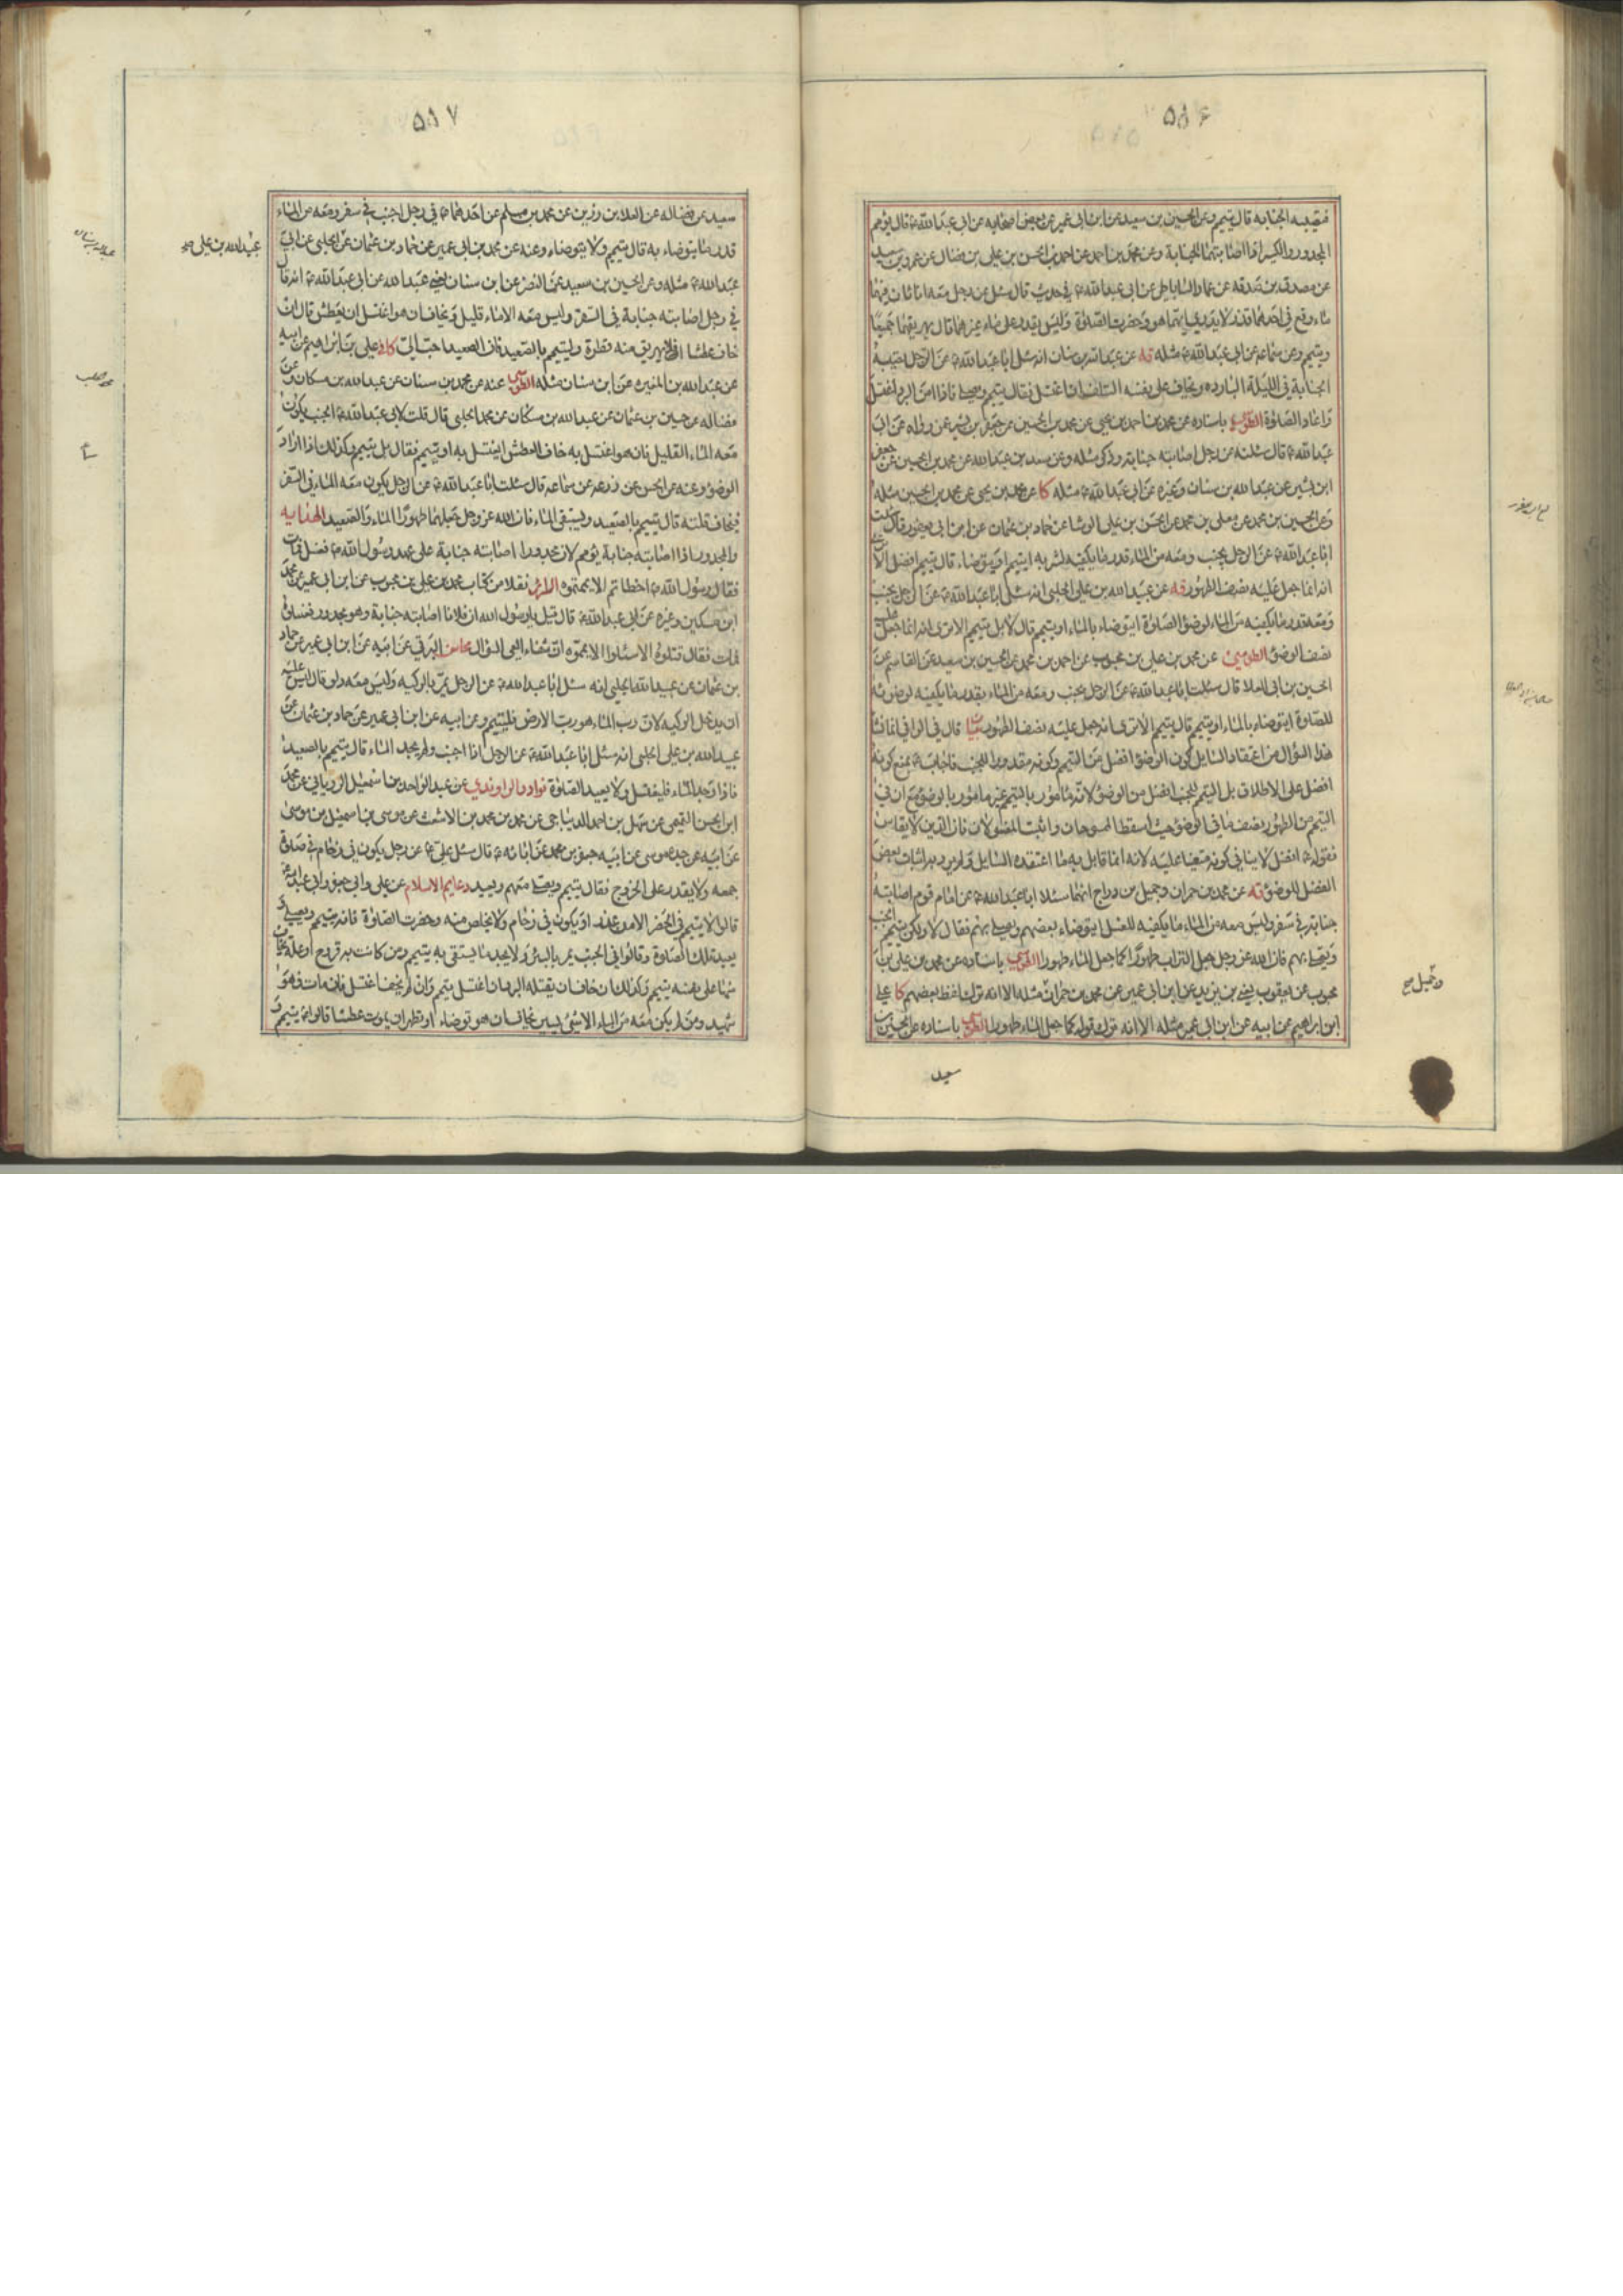 ۵۸۶
فتصيبه الجنابه قال يتيمم وعن الحسين بن سعيد عن ابن ابي عمير عن بعض اصحابه عن ابي عبد الله ع قال يؤمم
المجدور والكسير اذا اصابتهما الجنابة وعن محمد بن احمد عن احمد بن الحسن بن علي بن فضال عن عمرو بن سعيد
عن مصدق بن صدقه عن عمار الساباطي عن ابي عبد الله ع في حديث قال سئل عن رجل معه اناءان فيهما
ماء وقع في احدهما قذر لا يدري ايهما هو وحضرت الصلوة وليس يقدر على ماء غيرهما قال يهريقهما جميعا
ويتيمم وعن سماعه عن ابي عبد الله ع مثله قه عن عبد الله بن سنان انه سئل ابا عبد الله ع عن الرجل تصيبه
الجنابة في الليلة الباردة ويخاف على نفسه التلف ان اغتسل فقال يتيمم ويصلي فاذا امن البرد اغتسل
واعاد الصلوة الطوسي باسناده عن محمد بن احمد بن يحيى عن محمد بن الحسين عن جعفر بن بشير عمن رواه عن ابي
عبد الله ع قال سئلته عن رجل اصابته جنابة وذكر مثله وعن سعد بن عبد الله عن محمد بن الحسين عن جعفر
ابن بشير عن عبد الله بن سنان وغيره عن ابي عبد الله ع مثله كا عن محمد بن يحيى عن محمد بن الحسين مثله
وعن الحسين بن محمد عن معلى بن محمد عن الحسن بن علي الوشا عن حماد بن عثمان عن ابن ابي يعفور قال سئلت
ابا عبد الله ع عن الرجل يجنب ومعه من الماء قدر ما يكفيه لشربه ايتيمم او يتوضاء قال يتيمم افضل الا ترى
انه انما جعل عليه نصف الطهور قه عن عبيد الله بن علي الحلبي انه سئل ابا عبد الله ع عن الرجل يجنب
ومعه قدر ما يكفيه من الماء لوضؤ الصلوة ايتوضاء بالماء او يتيمم قال لا بل يتيمم الا ترى انه انما جعل عليه
نصف الوضوء الطوسي عن محمد بن علي بن محبوب عن احمد بن محمد عن الحسين بن سعيد عن القاسم عن
الحسين بن ابي العلا قال سئلت ابا عبد الله ع عن الرجل يجنب ومعه من الماء بقدر ما يكفيه لوضوئه
للصلوة ايتوضاء بالماء او يتيمم قال يتيمم الا ترى انه جعل عليه نصف الطهور بيان قال في الوافي انما نشأ
هذا السؤال من اعتقاد السايل كون الوضوء افضل من التيمم وكونه مقدورا للجنب فاجابه ع بمنع كونه
افضل على الاطلاق بل التيمم للجنب افضل من الوضوء لانه مأمور بالتيمم غير مامور بالوضوء مع ان في
التيمم من الطهور نصف ما في الوضوء حيث اسقط الممسوحات واثبت المغسولان فان الدين لا يقاس
فقوله ع افضل لا ينافي كونه متعينا عليه لانه انما قابل به ما اعتقده السايل ولم يرد به اثبات بعض
الفضل للوضوء قه عن محمد بن حمران وجميل بن دراج انهما سئلا ابا عبد الله ع عن امام قوم اصابته
جنابة في سفر وليس معه من الماء ما يكفيه للغسل ايتوضاء بعضهم ويصلي بهم فقال لا ولكن يتيمم الجنب
ويصلي بهم فان الله عز وجل جعل التراب طهورًا كما جعل الماء طهورا الطوسي باسناده عن محمد بن علي بن
محبوب عن يعقوب يعني بن يزيد عن ابن ابي عمير عن محمد بن حمران مثله الا انه ترك لفظ بعضهم كا علي
ابن ابراهيم عن ابيه عن ابن ابي عمير مثله الا انه ترك قوله كما جعل الماء طهورا الطوسي باسناده عن الحسين بن
سعيد
وجميل صح
۵۸۷
سعيد عن فضاله عن العلا بن رزين عن محمد بن مسلم عن احدهما ع في رجل اجنب في سفر ومعه من الماء
قدر ما يتوضاء به قال يتيمم ولا يتوضاء وعنه عن محمد بن ابي عمير عن حماد بن عثمان عن الحلبي عن ابي
عبد الله ع مثله وعن الحسين بن سعيد عن النضر عن ابن سنان يعني عبد الله عن ابي عبد الله ع انه قال
في رجل اصابته جنابة في السفر وليس معه الا ماء قليل ويخاف ان هو اغتسل ان يعطش قال ان
خاف عطشا فلا يهريق منه قطرة وليتيمم بالصعيد فان الصعيد احب الي كافي علي بن ابراهيم عن ابيه
عن عبد الله بن المغيره عن ابن سنان مثله الطوسي عنه عن محمد بن سنان عن عبد الله بن مسكان وعن
فضاله عن حسين بن عثمان عن عبد الله بن مسكان عن محمد الحلبي قال قلت لابي عبد الله ع الجنب يكون
معه الماء القليل فان هو اغتسل به خاف العطش ايغتسل به او يتيمم فقال بل يتيمم وكذلك اذا اراد
الوضوء وعنه عن الحسن عن زرعه عن سماعه قال سئلت ابا عبد الله ع عن الرجل يكون معه الماء في السفر
فيخاف قلته قال يتيمم بالصعيد ويستبقي الماء فان الله عز وجل جعلهما طهورًا الماء والصعيد الهدايه
والمجدور اذا اصابته جنابة يؤمم لان مجدورا اصابته جنابة على عهد رسول الله ص فغسل فمات
فقال رسول الله ص اخطاتم الا يممتموه السرائر نقلا من كتاب محمد بن علي بن محبوب عن ابن ابي عمير عن محمد
ابن مسكين وغيره عن ابي عبد الله ع قال قيل يا رسول الله ان فلانا اصابته جنابة وهو مجدور فغسلوه
فمات فقال قتلوه الا سئلوا الا يمموه ان شفاء العي السؤال محاسن البرقي عن ابيه عن ابن ابي عمير عن حماد
بن عثمان عن عبيد الله الحلبي انه سئل ابا عبد الله ع عن الرجل يمر بالركيه وليس معه دلو قال ليس عليه
ان يدخل الركيه لان رب الماء هو رب الارض فليتيمم وعن ابيه عن ابن ابي عمير عن حماد بن عثمان عن
عبيد الله بن علي الحلبي انه سئل ابا عبد الله ع عن الرجل اذا اجنب ولم يجد الماء قال يتيمم بالصعيد
فاذا وجد الماء فليغتسل ولا يعيد الصلوة نوادر الراوندي عن عبد الواحد بن اسمعيل الروياني عن محمد
ابن الحسن التميمي عن سهل بن احمد الديباجي عن محمد بن محمد بن الاشعث عن موسى بن اسمعيل بن موسى
عن ابيه عن جده موسى عن ابيه جعفر بن محمد عن ابائه ع قال سئل علي ع عن رجل يكون في زحام في صلوة
جمعه ولا يقدر على الخروج فقال يتيمم ويصلي معهم ويعيد دعايم الاسلام عن علي وابي جعفر وابي عبد الله ع
قالوا لا يتيمم في الحضر الا من عذر او يكون في زحام ولا يخلص منه وحضرت الصلوة فانه يتيمم ويصلي و
يعيد تلك الصلوة وقالوا في الجنب يمر بالبئر ولا يجد ما يستقي به يتيمم ومن كانت به قروح او علة يخاف
منها على نفسه يتيمم وكذلك ان خاف ان يقتله البرد ان اغتسل يتيمم وان لم يخف اغتسل فان مات فهو
شهيد ومن لم يكن معه من الماء الا شئ يسير يخاف ان هو توضاء او تطهر ان يموت عطشا قالوا ع يتيمم و
عبيد الله بن علي صح